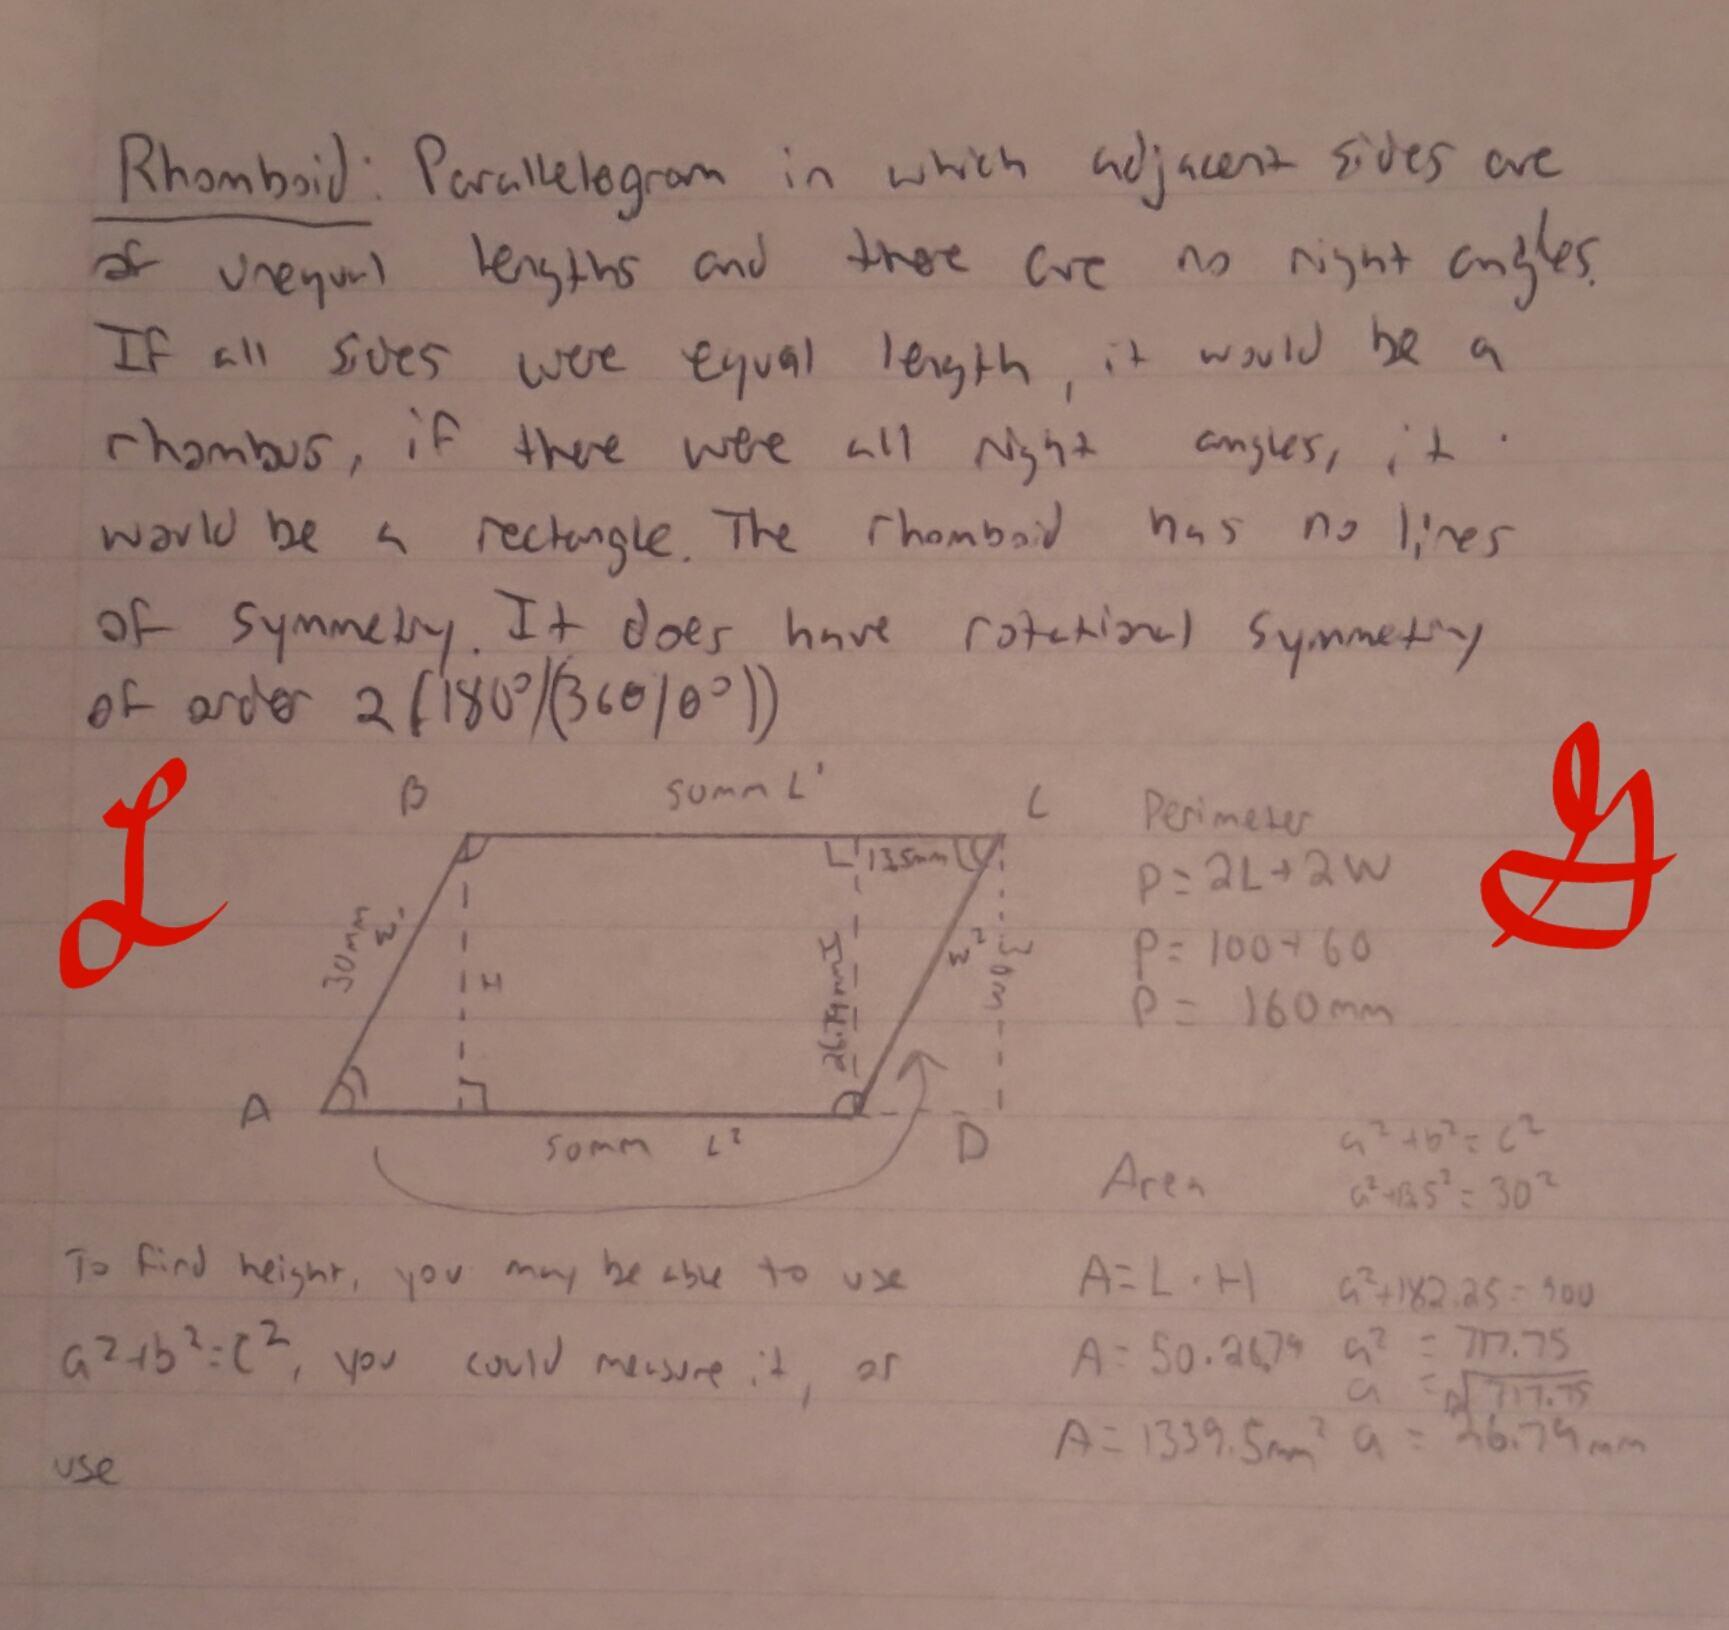 Rhomboid: Parallelogram in which adjacent sides are
of unequal lengths and there are no right angles.
If all sides were equal length, it would be a
rhombus, if there were all right angles, it
would be a rectangle. The rhomboid has no lines
of symmetry. It does have rotational symmetry
of order 2 (180°/(360/θ°))
L
G
B
50mm L¹
C
30mm
W¹
H
13.5mm
26.79mm H
W²
30mm
A
50mm L²
D
Perimeter
P=2L+2W
P=100+60
P= 160mm
To find height, you may be able to use
a²+b²=c², you could measure it, or
use
Area
A=L·H
A=50·26.79
A=1339.5mm²
a²+b²=c²
a²+13.5²=30²
a²+182.25=900
a² = 717.75
a = √717.75
a = 26.79mm